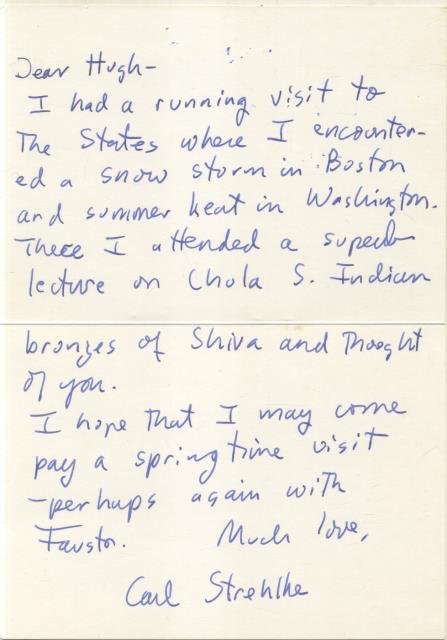 Dear Hugh-
I had a running visit to
The States where I encounter-
ed a snow storm in Boston
and summer heat in Washington.
There I attended a superb
lecture on Chola S. Indian
bronzes of Shiva and Thought
of you.
I hope that I may come
pay a springtime visit
-perhaps again with
Fausto.    Much love,
Carl Strehlke